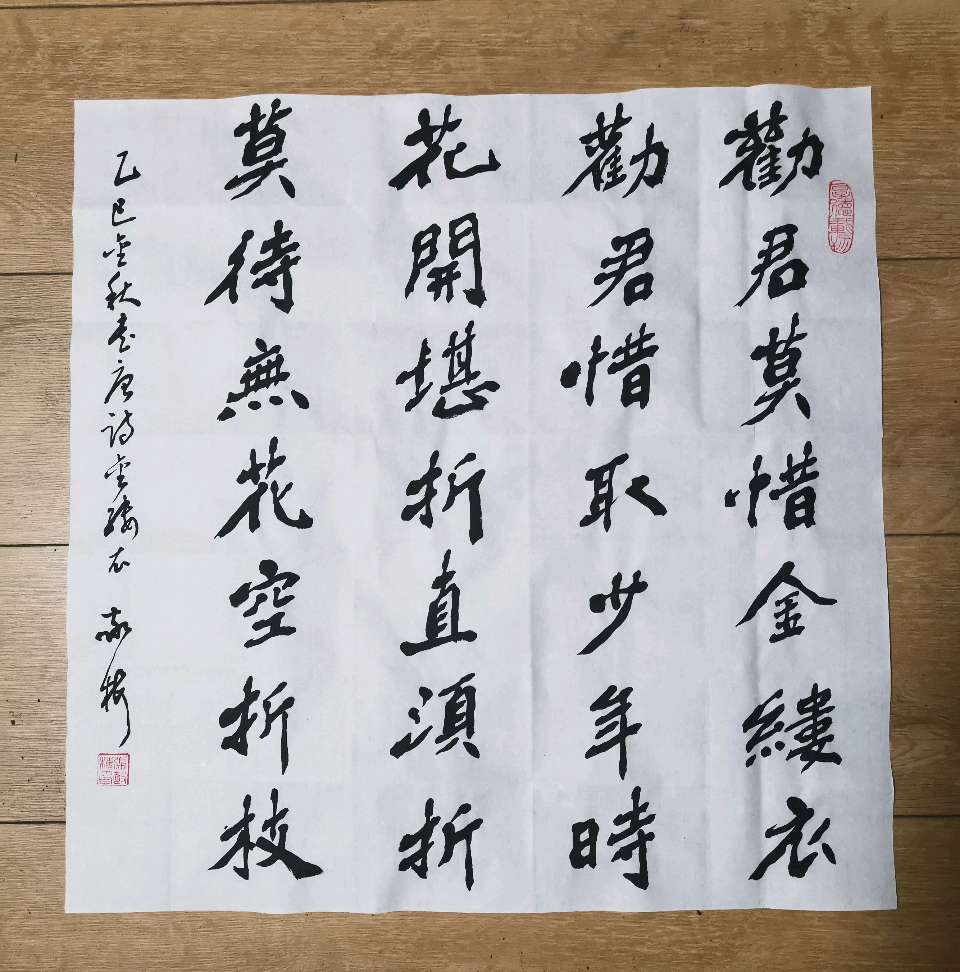 勸君莫惜金縷衣
勸君惜取少年時
花開堪折直須折
莫待無花空折枝
乙巳金秋書唐詩金縷衣
厚德載物